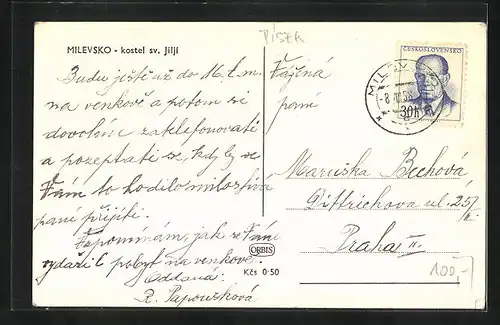 PÍSEK
MILEVSKO - kostel sv. Jiljí
Budu ještě až do 16. t. m.
na venkově a potom si
dovolím zatelefonovati
a pozeptati se, kdy by se
Vám to hodilo milostivá
paní přijíti.
Vzpomínám, jak se Vám
vydařil pobyt na venkově.
Oddaná:
R. Papoušková
ČESKOSLOVENSKO
30h
MILEVSKO
Vážená
paní
Maruška Bechová
Dittrichova ul. 25/
Praha II.
ORBIS
Kčs 0·50
100,-